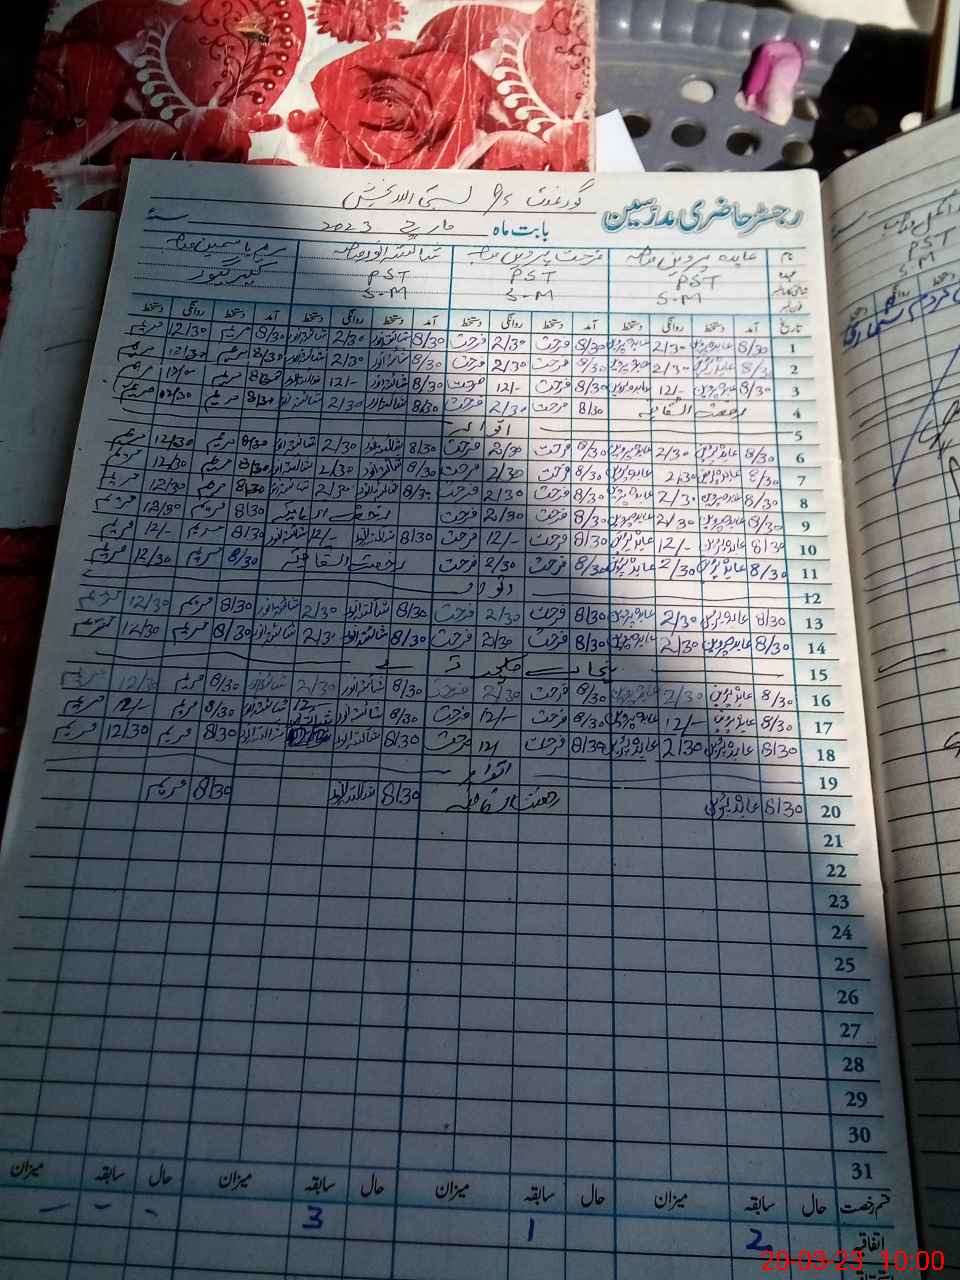 رجسٹر حاضری مدرسین
بابت ماہ مارچ 2023 سنہ
نام عابدہ پروین صاحبہ فرحت پروین صاحبہ شائستہ انور صاحبہ مریم یاسمین صاحبہ
عہدہ PST PST PST کیئر گیور
S.M S.M S.M
تاریخ آمد دستخط روانگی دستخط آمد دستخط روانگی دستخط آمد دستخط روانگی دستخط آمد دستخط روانگی دستخط
1 8/30 عابدہ پروین 2/30 عابدہ پروین 8/30 فرحت 2/30 فرحت 8/30 شائستہ انور 2/30 شائستہ انور 8/30 مریم 12/30 مریم
2 8/30 عابدہ پروین 2/30 عابدہ پروین 8/30 فرحت 2/30 فرحت 8/30 شائستہ انور 2/30 شائستہ انور 8/30 مریم 12/30 مریم
3 8/30 عابدہ پروین 12/- عابدہ پروین 8/30 فرحت 12/- فرحت 8/30 شائستہ انور 12/- شائستہ انور 8/30 مریم 12/- مریم
4 رخصت اتفاقیہ 8/30 فرحت 2/30 فرحت 8/30 شائستہ انور 2/30 شائستہ انور 8/30 مریم 12/30 مریم
5 اتوار
6 8/30 عابدہ پروین 2/30 عابدہ پروین 8/30 فرحت 2/30 فرحت 8/30 شائستہ انور 2/30 شائستہ انور 8/30 مریم 12/30 مریم
7 8/30 عابدہ پروین 2/30 عابدہ پروین 8/30 فرحت 2/30 فرحت 8/30 شائستہ انور 2/30 شائستہ انور 8/30 مریم 12/30 مریم
8 8/30 عابدہ پروین 2/30 عابدہ پروین 8/30 فرحت 2/30 فرحت 8/30 شائستہ انور 2/30 شائستہ انور 8/30 مریم 12/30 مریم
9 8/30 عابدہ پروین 2/30 عابدہ پروین 8/30 فرحت 2/30 فرحت رخصت اتفاقیہ 8/30 مریم 12/30 مریم
10 8/30 عابدہ پروین 12/- عابدہ پروین 8/30 فرحت 12/- فرحت 8/30 شائستہ انور 12/- شائستہ انور 8/30 مریم 12/- مریم
11 8/30 عابدہ پروین 2/30 عابدہ پروین 8/30 فرحت 2/30 فرحت رخصت اتفاقیہ 8/30 مریم 12/30 مریم
12 اتوار
13 8/30 عابدہ پروین 2/30 عابدہ پروین 8/30 فرحت 2/30 فرحت 8/30 شائستہ انور 2/30 شائستہ انور 8/30 مریم 12/30 مریم
14 8/30 عابدہ پروین 2/30 عابدہ پروین 8/30 فرحت 2/30 فرحت 8/30 شائستہ انور 2/30 شائستہ انور 8/30 مریم 12/30 مریم
15
16 8/30 عابدہ پروین 2/30 عابدہ پروین 8/30 فرحت 2/30 فرحت 8/30 شائستہ انور 2/30 شائستہ انور 8/30 مریم 12/30 مریم
17 8/30 عابدہ پروین 12/- عابدہ پروین 8/30 فرحت 12/- فرحت 8/30 شائستہ انور 12 شائستہ انور 8/30 مریم 12/- مریم
18 8/30 عابدہ پروین 2/30 عابدہ پروین 8/30 فرحت 12/ فرحت 8/30 شائستہ انور شائستہ انور 8/30 مریم 12/30 مریم
19 اتوار
20 8/30 عابدہ پروین رخصت اتفاقیہ 8/30 شائستہ انور 8/30 مریم
21
22
23
24
25
26
27
28
29
30
31
قسم رخصت حال سابقہ میزان حال سابقہ میزان حال سابقہ میزان حال سابقہ میزان
اتفاقیہ 2 1 3 - - -
PST
S.M
20-03-23 10:00